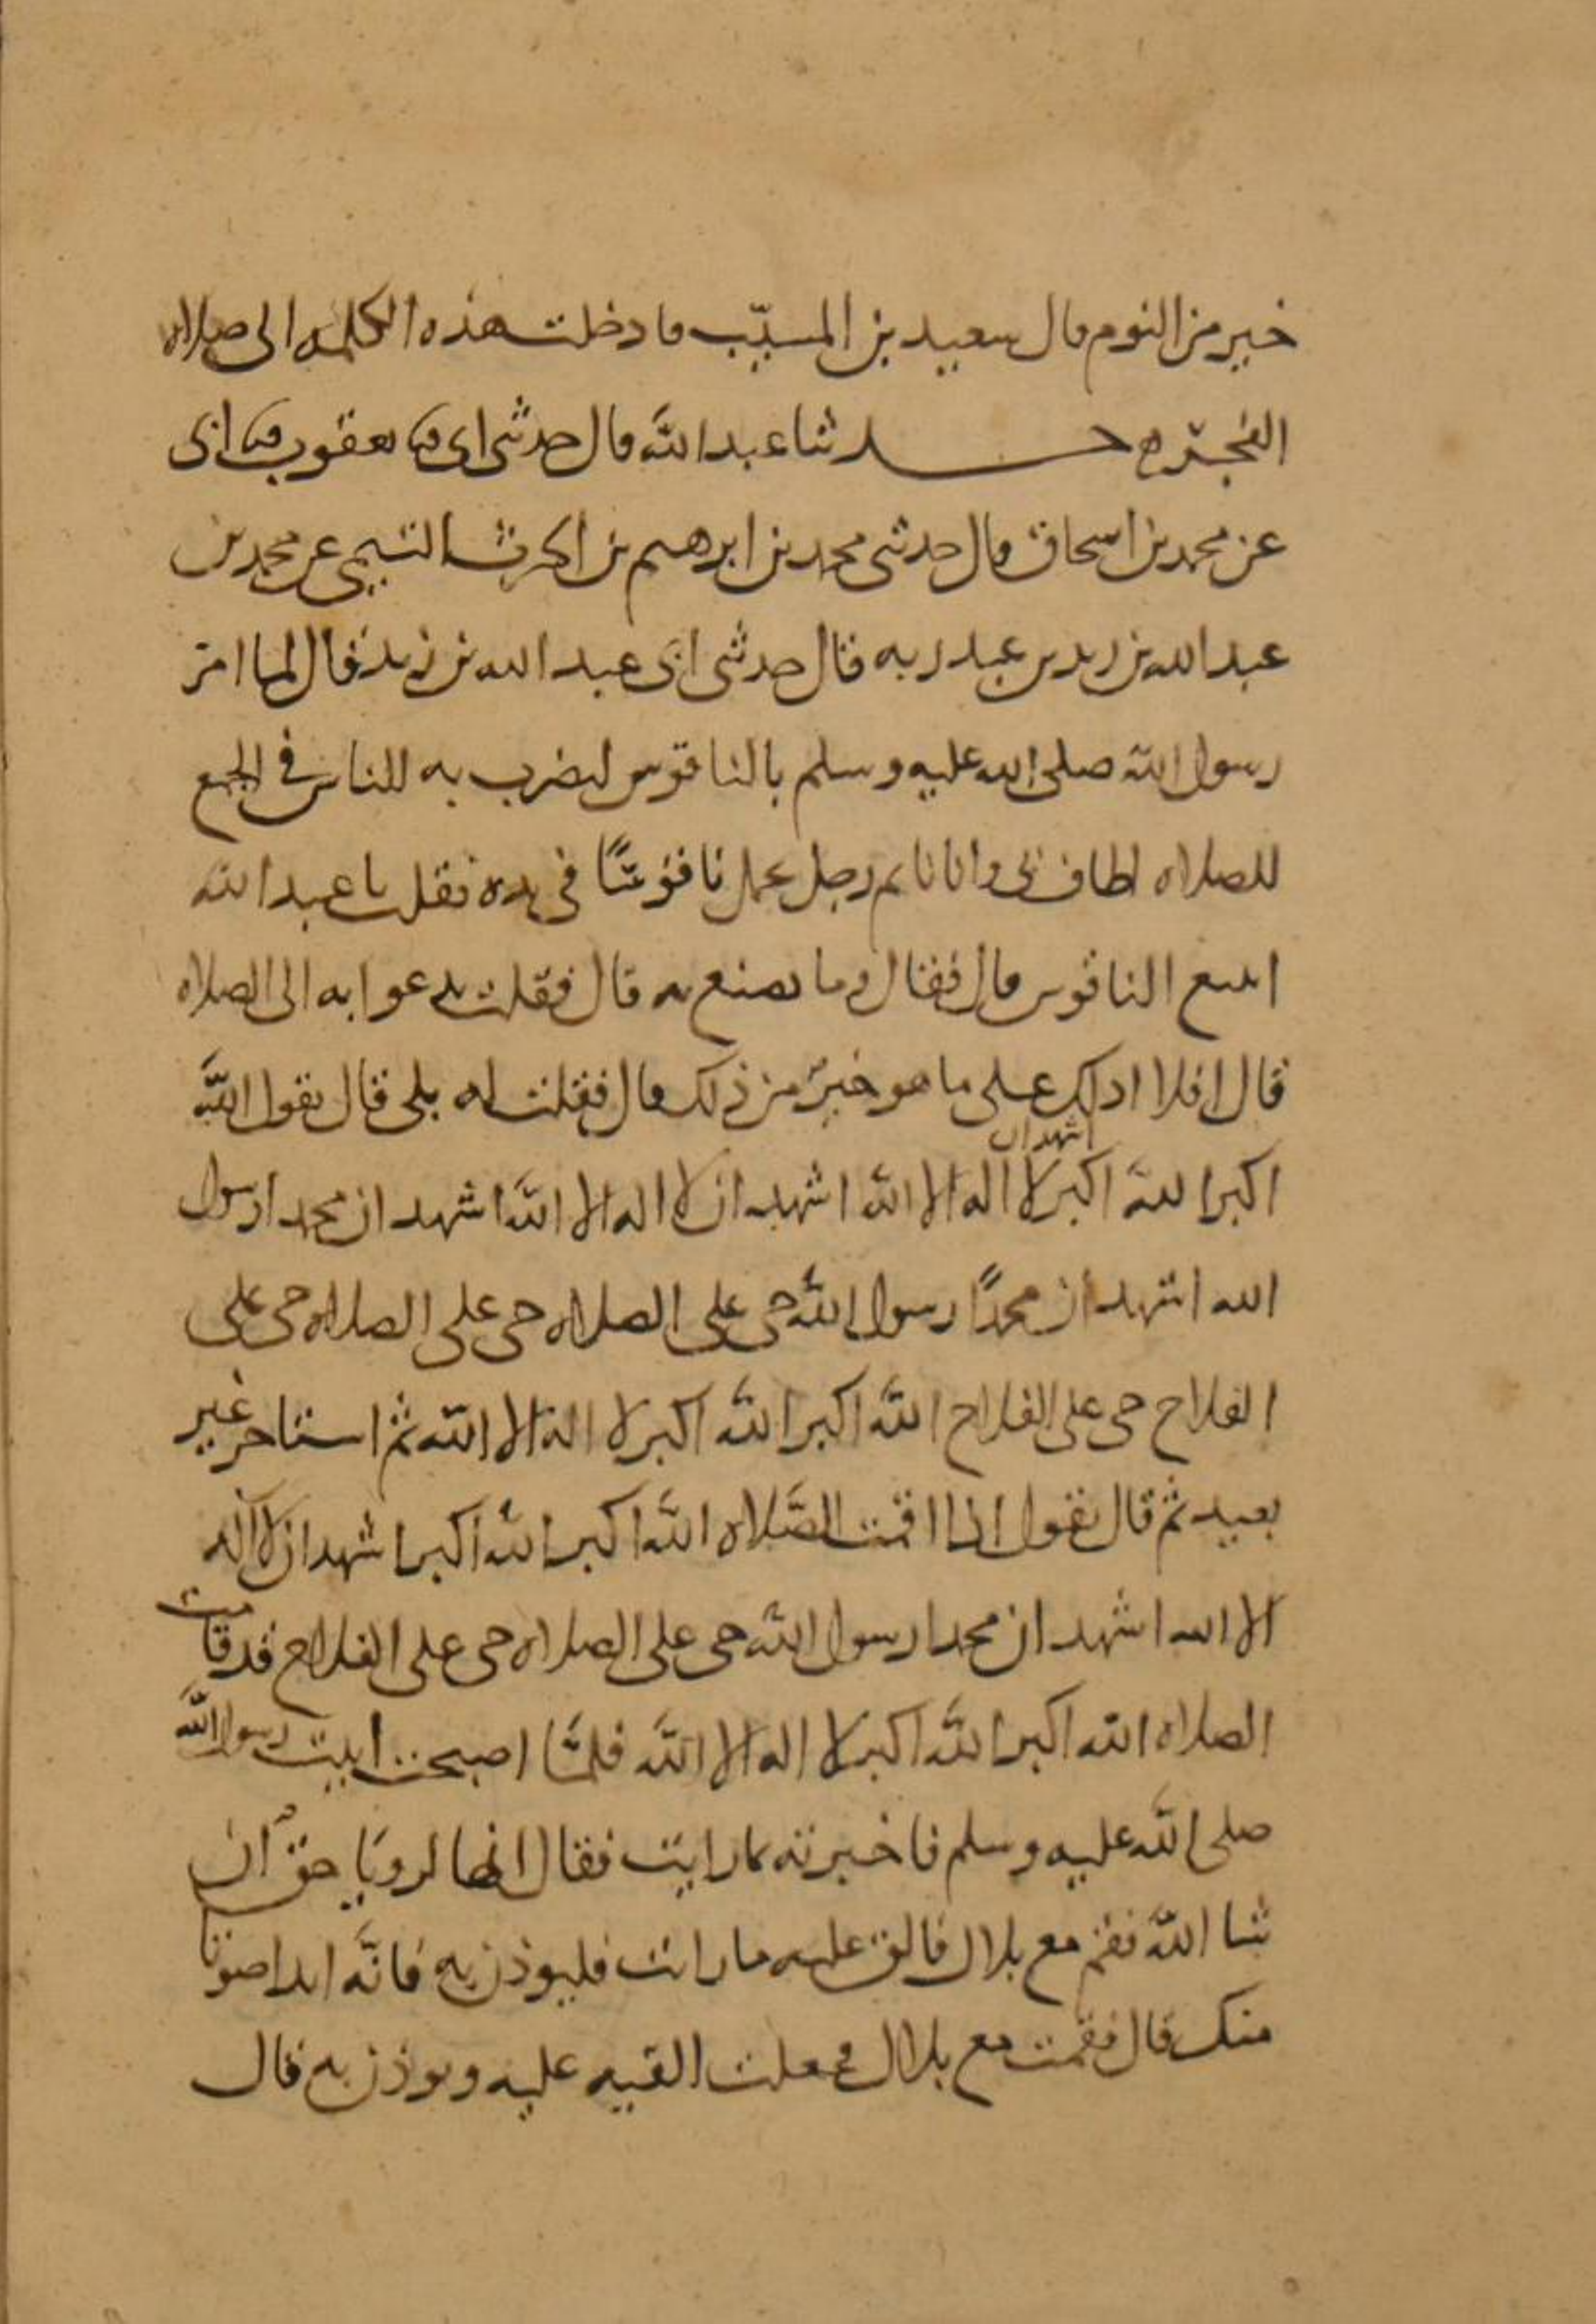 خير من النوم قال سعيد بن المسيّب فادخلت هذه الكلمه الى صلاه
الفجر حدثنا عبد الله قال حدثنى ابى ثنا يعقوب ثنا ابى
عن محمد بن اسحاق قال حدثنى محمد بن ابرهيم بن الحرث التيمي عن محمد بن
عبد الله بن زيد بن عبد ربه قال حدثنى ابى عبد الله بن زيد قال لما امر
رسول الله صلى الله عليه وسلم بالناقوس ليضرب به للناس في الجمع
للصلاه اطاف بى وانا نايم رجل يحمل ناقوسًا فى يده فقلت يا عبد الله
اتبيع الناقوس قال فقال وما تصنع به قال فقلت ندعوا به الى الصلاه
قال افلا ادلك على ما هو خيرٌ من ذلك قال فقلت له بلى قال تقول الله
اشهد ان
اكبر الله اكبر لا اله الا الله اشهد ان لا اله الا الله اشهد ان محمدا رسول
الله اشهد ان محمدًا رسول الله حى على الصلاه حى على الصلاه حى على
الفلاح حى على الفلاح الله اكبر الله اكبر لا اله الا الله ثم استاخر غير
بعيد ثم قال تقول اذا اقمت الصَّلاه الله اكبر الله اكبر اشهد ان لا اله
الا الله اشهد ان محمدا رسول الله حى على الصلاه حى على الفلاح قد قامت
الصلاه الله اكبر الله اكبر لا اله الا الله فلمَّا اصبحت اتيت رسول الله
صلى الله عليه وسلم فاخبرته بما رايت فقال انها لرويَا حق ان
شا الله فقم مع بلال فالق عليه ما رايت فليوذن به فانَّه اندا صوتا
منك قال فقمت مع بلال فجعلت القيه عليه ويوذن به قال